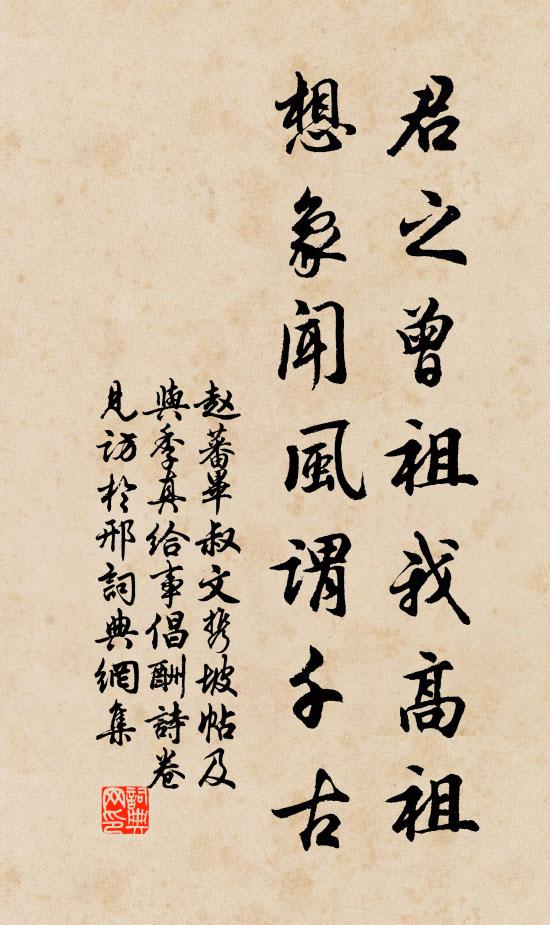 君之曾祖我高祖
想象聞風謂千古
赵蕃畢叔文携坡帖及
與季真给事倡酬詩卷
見访於邢詞典網集
詞典网印